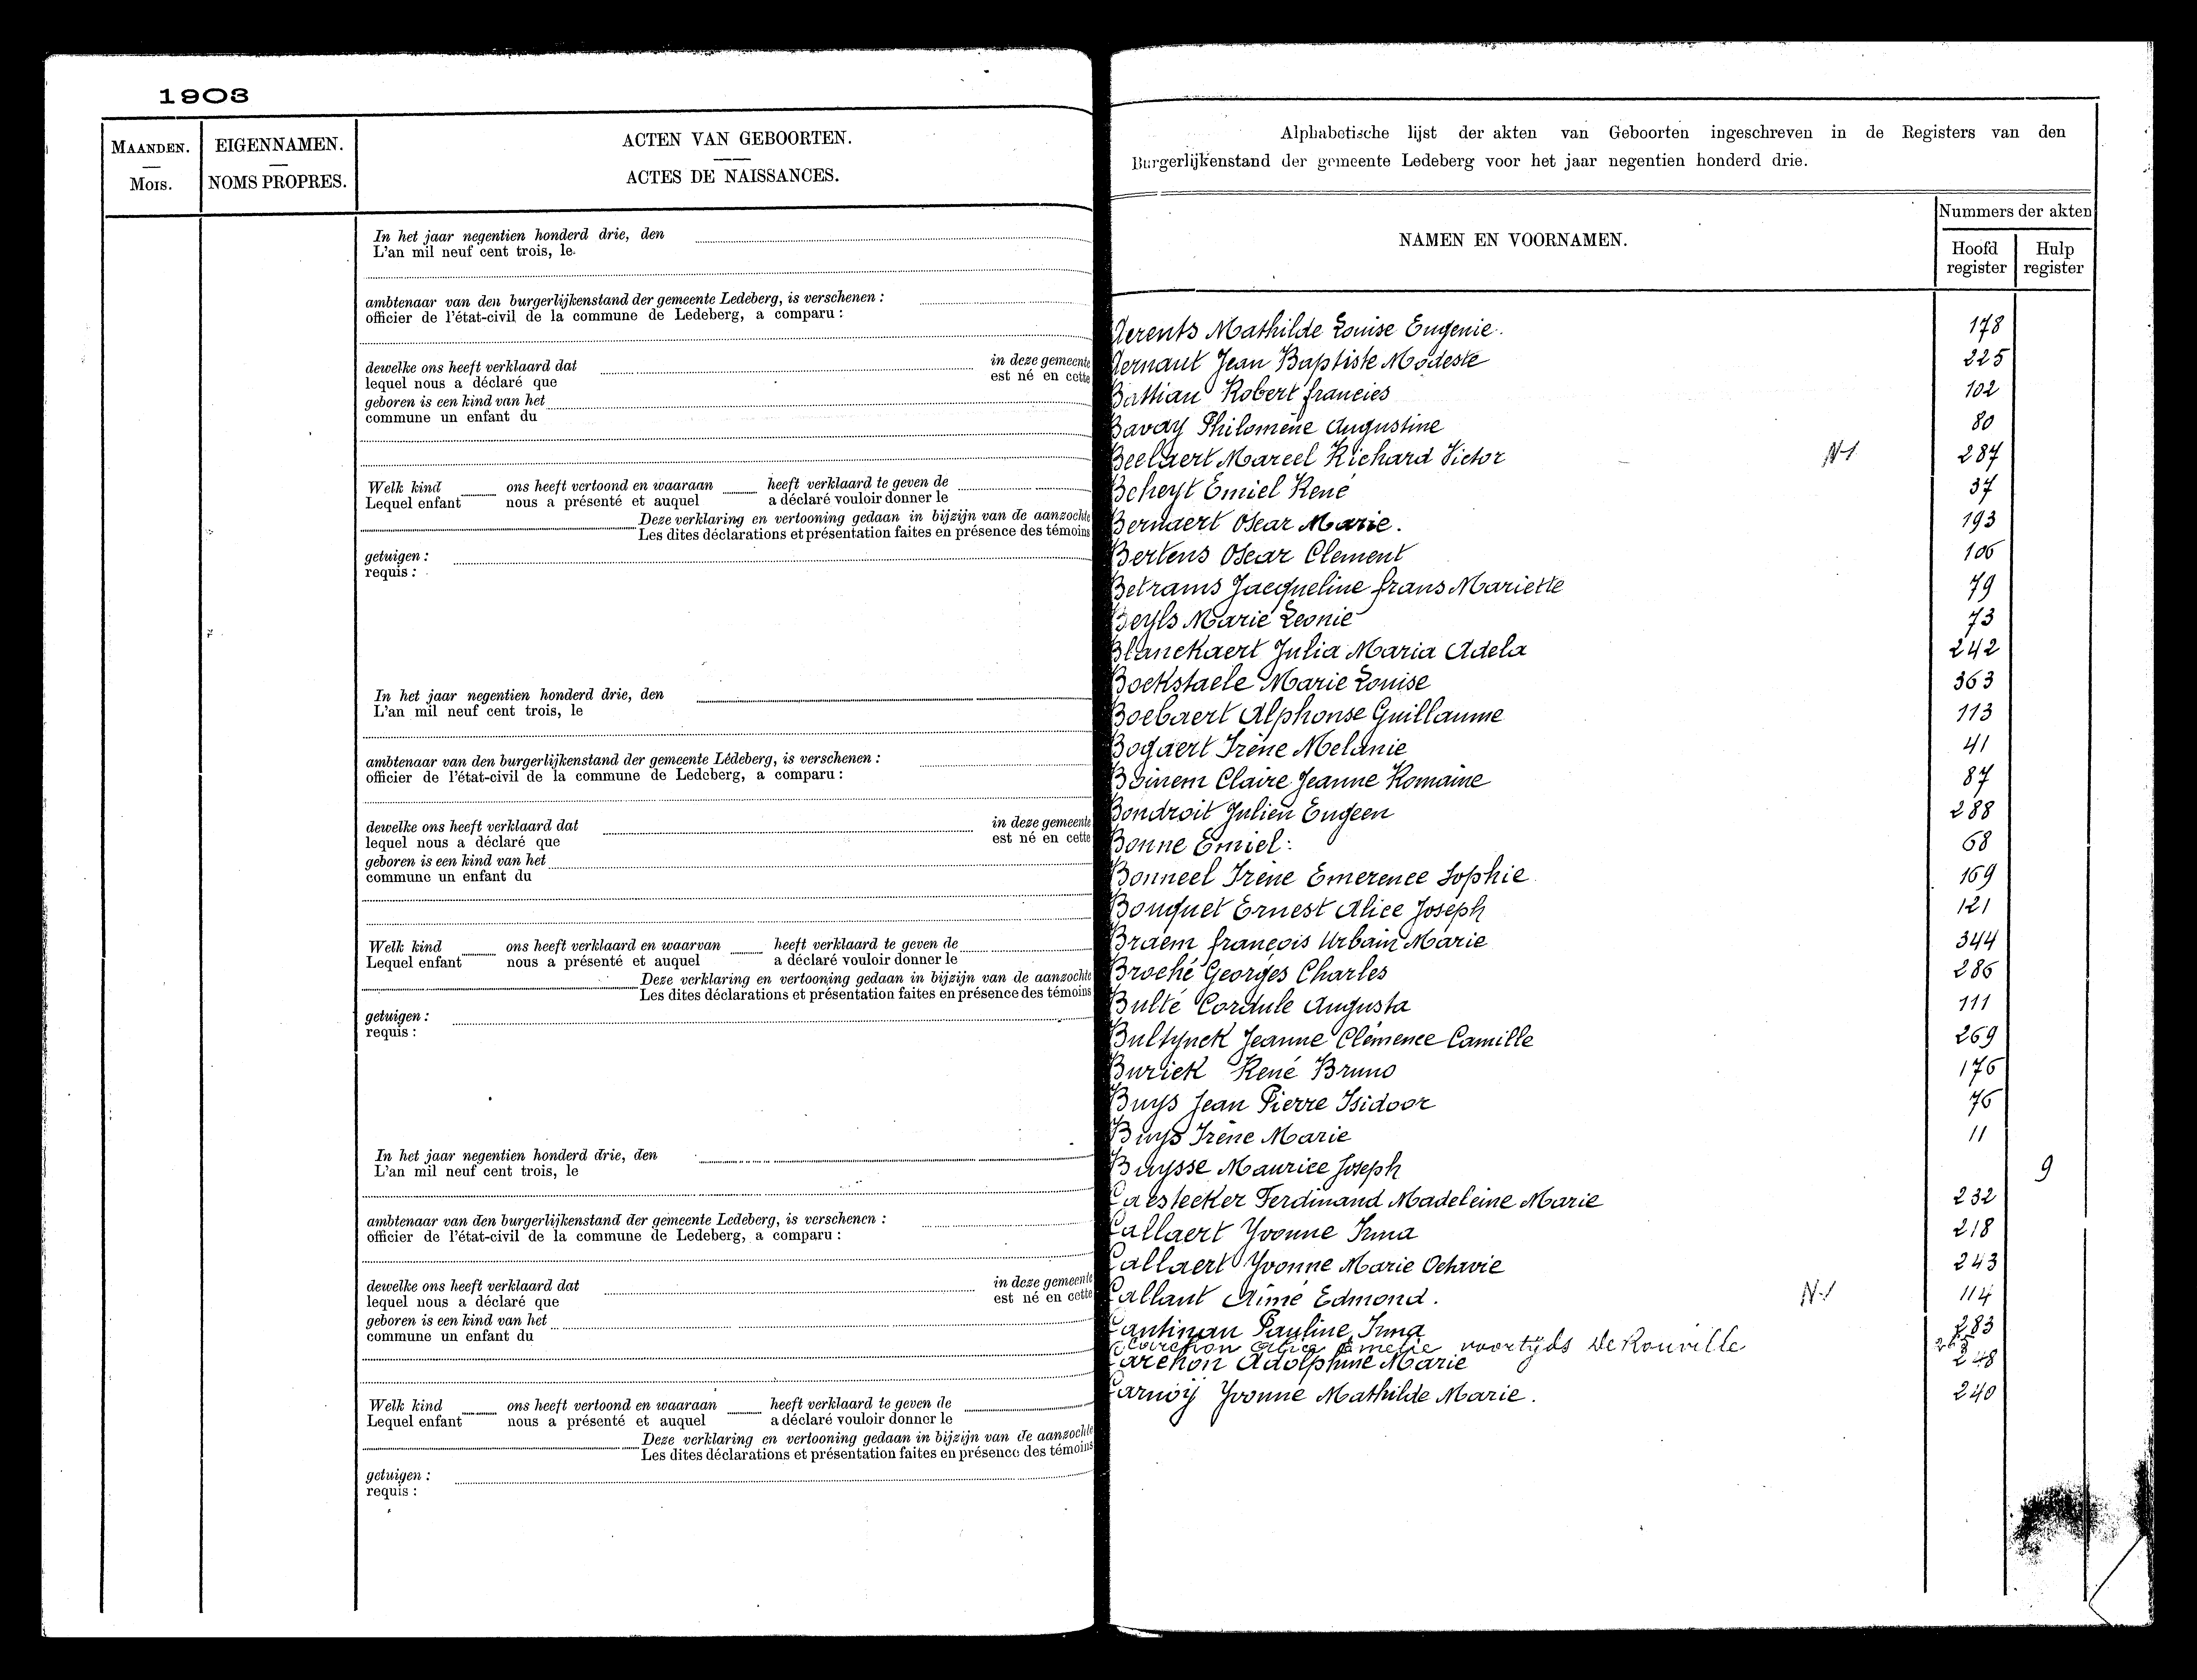 1903
MAANDEN.
Mois.
EIGENNAMEN.
NOMS PROPRES.
ACTEN VAN GEBOORTEN.
ACTES DE NAISSANCES.
In het jaar negentien honderd drie, den
L'an mil neuf cent trois, le
ambtenaar van den burgerlijkenstand der gemeente Ledeberg, is verschenen :
officier de l'état-civil de la commune de Ledeberg, a comparu :
dewelke ons heeft verklaard dat in deze gemeente
lequel nous a déclaré que est né en cette
geboren is een kind van het
commune un enfant du
Welk kind ons heeft vertoond en waaraan heeft verklaard te geven de
Lequel enfant nous a présenté et auquel a déclaré vouloir donner le
Deze verklaring en vertooning gedaan in bijzijn van de aanzochte
Les dites déclarations et présentation faites en présence des témoins
getuigen :
requis :
In het jaar negentien honderd drie, den
L'an mil neuf cent trois, le
ambtenaar van den burgerlijkenstand der gemeente Lédeberg, is verschenen :
officier de l'état-civil de la commune de Ledeberg, a comparu :
dewelke ons heeft verklaard dat in deze gemeente
lequel nous a déclaré que est né en cette
geboren is een kind van het
commune un enfant du
Welk kind ons heeft verklaard en waarvan heeft verklaard te geven de
Lequel enfant nous a présenté et auquel a déclaré vouloir donner le
Deze verklaring en vertooning gedaan in bijzijn van de aanzochte
Les dites déclarations et présentation faites en présence des témoins
getuigen :
requis :
In het jaar negentien honderd drie, den
L'an mil neuf cent trois, le
ambtenaar van den burgerlijkenstand der gemeente Ledeberg, is verschenen :
officier de l'état-civil de la commune de Ledeberg, a comparu :
dewelke ons heeft verklaard dat in deze gemeente
lequel nous a déclaré que est né en cette
geboren is een kind van het
commune un enfant du
Welk kind ons heeft vertoond en waaraan heeft verklaard te geven de
Lequel enfant nous a présenté et auquel a déclaré vouloir donner le
Deze verklaring en vertooning gedaan in bijzijn van de aanzochte
Les dites déclarations et présentation faites en présence des témoins
getuigen :
requis :
Alphabetische lijst der akten van Geboorten ingeschreven in de Registers van den
Burgerlijkenstand der gemeente Ledeberg voor het jaar negentien honderd drie.
NAMEN EN VOORNAMEN.
Nummers der akten
Hoofd register
Hulp register
Aerents Mathilde Louise Eugenie. 178
Aernaut Jean Baptiste Modeste 225
Battiau Robert francies 102
Bavay Philomène Augustine 80
Beelaert Marcel Richard Victor N1 287
Beheyt Emiel René 37
Bernaert Oscar Marie. 193
Bertens Oscar Clement 106
Betrams Jacqueline frans Mariette 79
Beyls Marie Leonie 73
Blanckaert Julia Maria Adela 242
Bockstaele Marie Louise 363
Boebaert Alphonse Guillaume 113
Bogaert Irène Melanie 41
Boinem Claire Jeanne Romaine 87
Bondroit Julien Eugeen 288
Bonne Emiel: 68
Bonneel Irène Emerence Sophie 169
Bouquet Ernest Alice Joseph 121
Braem françois Urbain Marie 344
Broché Georges Charles 286
Bulté Cordule Augusta 111
Bultynck Jeanne Clémence Camille 269
Burick René Bruno 176
Buys Jean Pierre Isidoor 76
Buys Irène Marie 11
Buysse Maurice Joseph 9
Caestecker Ferdinand Madeleine Marie 232
Callaert Yvonne Irma 218
Callaert Yvonne Marie Octavie 243
Callant Aimé Edmond. N1 114
Cantinau Pauline Irma 283
Carchon Alice Emelie voortijds De Rouville
Carchon Adolphine Marie 248
Carnoy Yvonne Mathilde Marie. 240